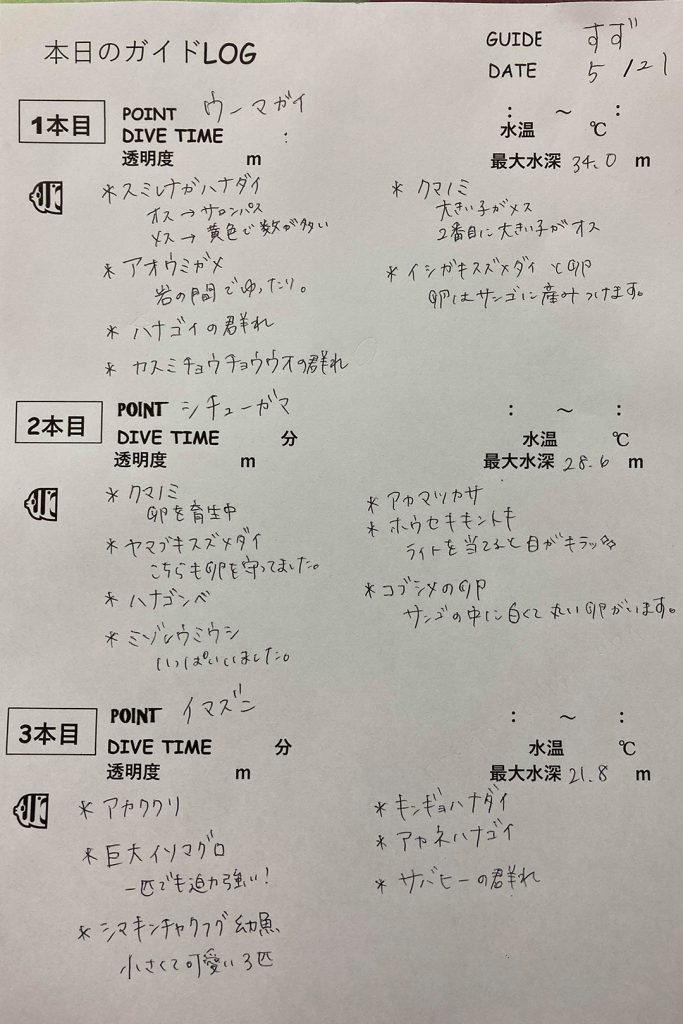 本日のガイドLOG
GUIDE すず
DATE 5/21
1本目
POINT ウーマガイ
DIVE TIME :
透明度 m
: ～ :
水温 ℃
最大水深 34.0 m
*スミレナガハナダイ
オス→サロンパス
メス→黄色で数が多い
*アオウミガメ
岩の間でゆったり。
*ハナゴイの群れ
*カスミチョウチョウウオの群れ
*クマノミ
大きい子がメス
2番目に大きい子がオス
*イシガキスズメダイと卵
卵はサンゴに産みつけます。
2本目
POINT シチューガマ
DIVE TIME 分
透明度 m
: ～ :
水温 ℃
最大水深 28.6 m
*クマノミ
卵を育生中
*ヤマブキスズメダイ
こちらも卵を守ってました。
*ハナゴンベ
*ミゾレウミウシ
いっぱいいました。
*アカマツカサ
*ホウセキキントキ
ライトを当てると目がキラッ
*コブシメの卵
サンゴの中に白くて丸い卵がいます。
3本目
POINT イマズニ
DIVE TIME 分
透明度 m
: ～ :
水温 ℃
最大水深 21.8 m
*アカククリ
*巨大イソマグロ
一匹でも迫力強い!
*シマキンチャクフグ幼魚
小さくて可愛い3匹
*キンギョハナダイ
*アカネハナゴイ
*サバヒーの群れ